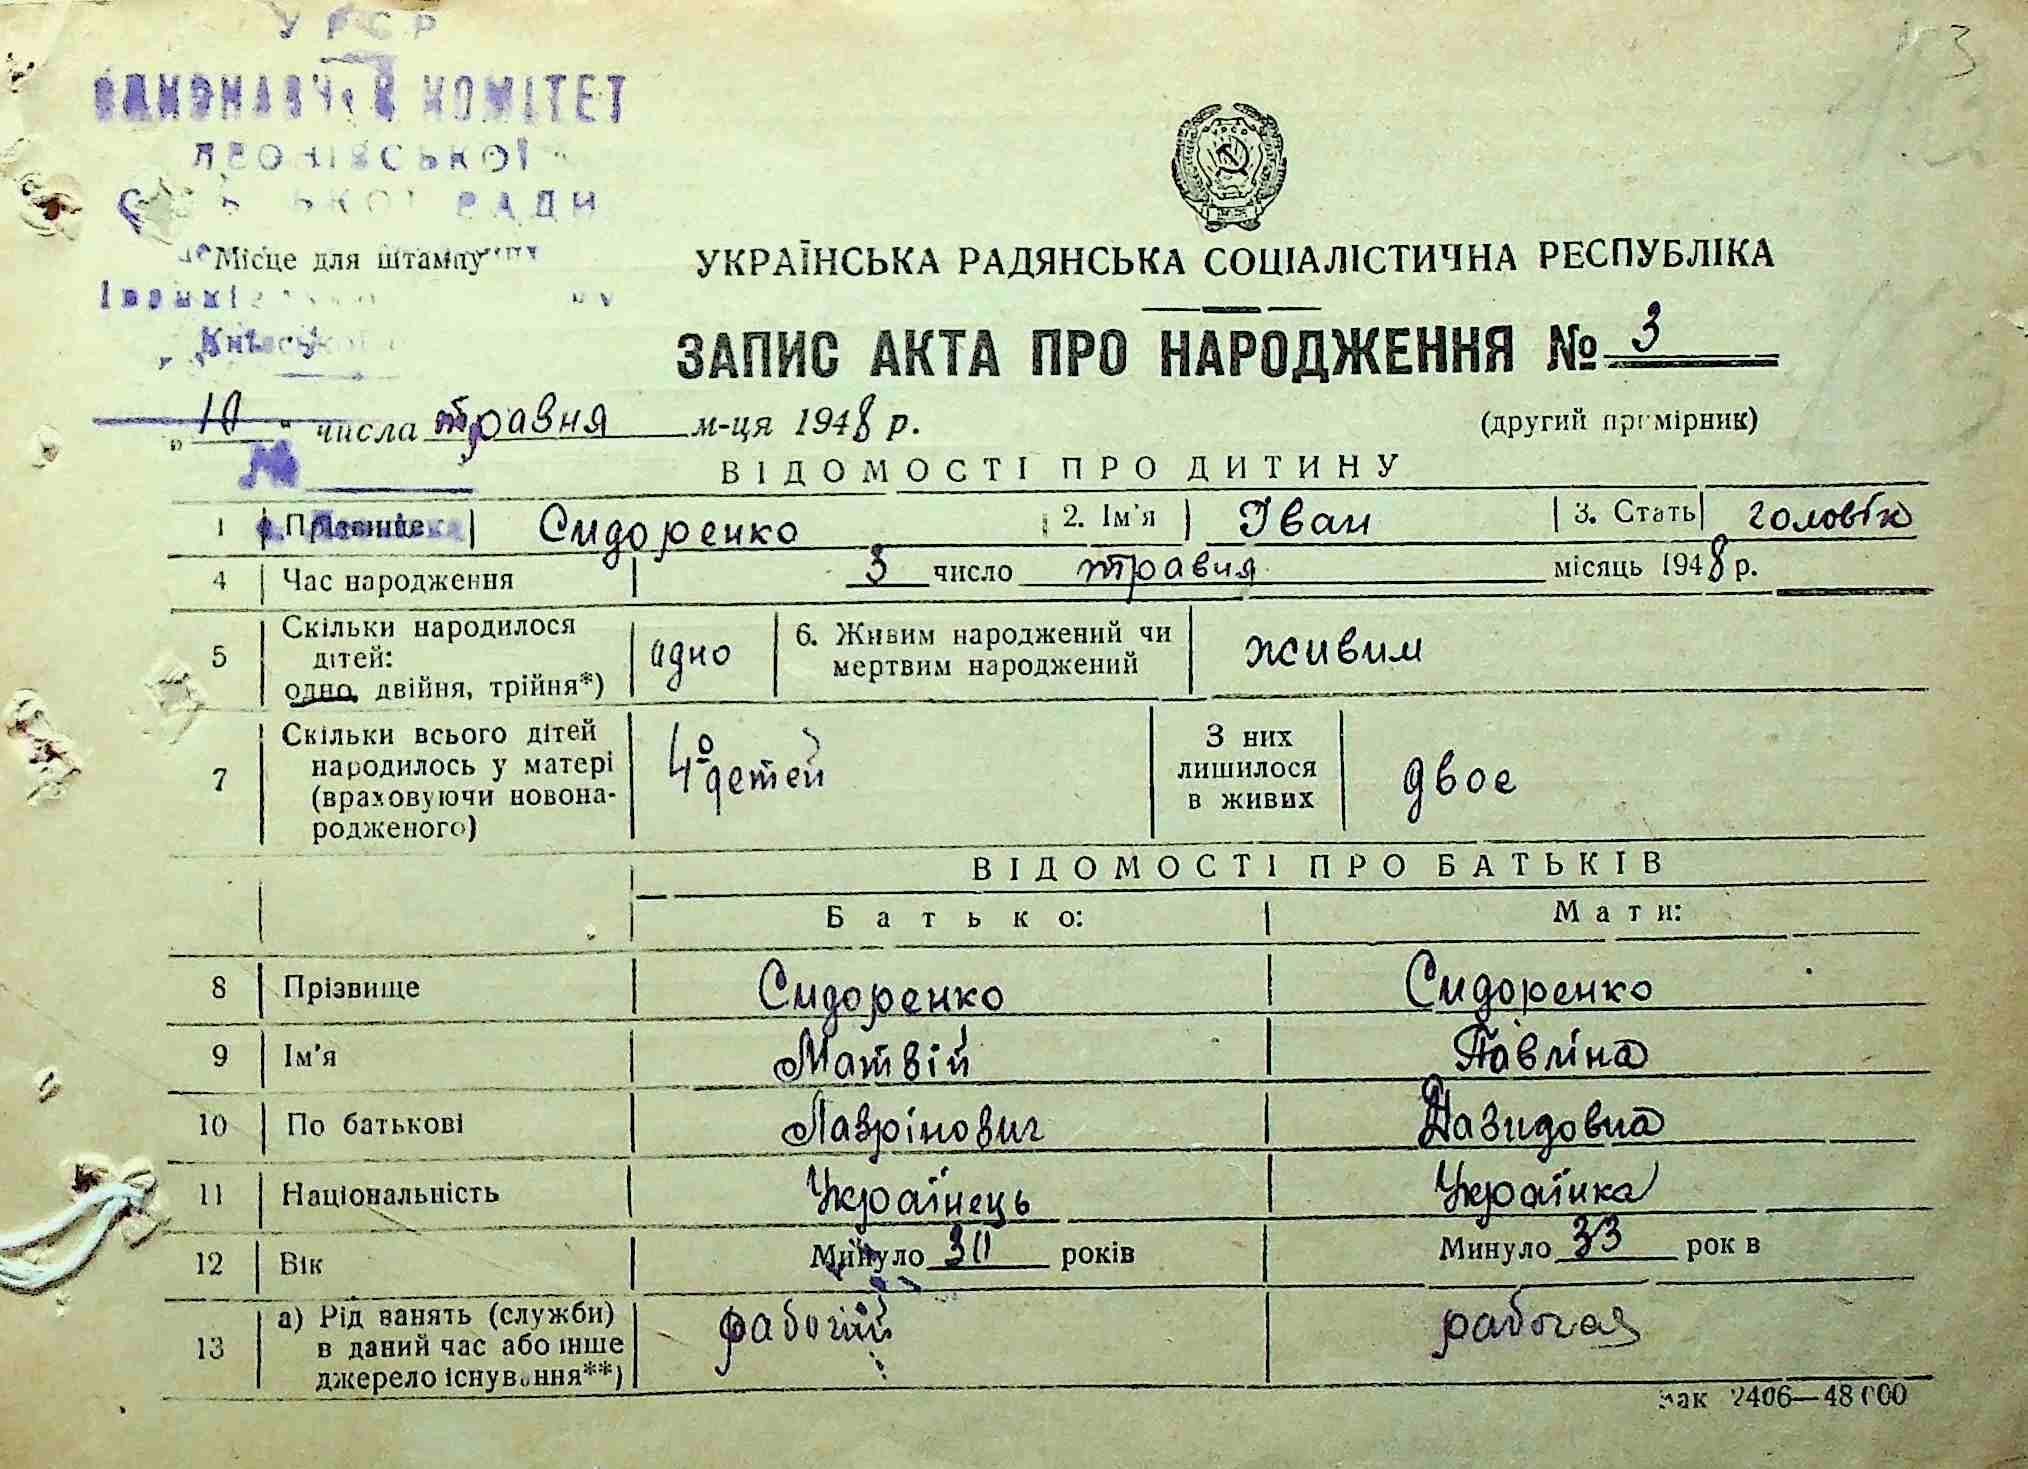 УРСР
ВИКОНАВЧИЙ КОМІТЕТ
ЛЕОНІВСЬКОЇ
РАДИ
Місце для штампу
УКРАЇНСЬКА РАДЯНСЬКА СОЦІАЛІСТИЧНА РЕСПУБЛІКА
ЗАПИС АКТА ПРО НАРОДЖЕННЯ № 3
„10“ числа травня м-ця 1948 р.
(другий примірник)
№
ВІДОМОСТІ ПРО ДИТИНУ
1 Прізвище Сидоренко 2. Ім'я Іван 3. Стать головік
4 Час народження 3 число травня місяць 1948 р.
5 Скільки народилося дітей: одно, двійня, трійня*) адно 6. Живим народжений чи мертвим народжений живим
7 Скільки всього дітей народилось у матері (враховуючи новонародженого) 4о детей З них лишилося в живих двое
ВІДОМОСТІ ПРО БАТЬКІВ
Батько: Мати:
8 Прізвище Сидоренко Сидоренко
9 Ім'я Матвій Павліна
10 По батькові Лаврінович Давидовна
11 Національність Українець Українка
12 Вік Минуло 30 років Минуло 33 років
13 а) Рід занять (служби) в даний час або інше джерело існування**) рабочій рабочая
Зак 2406—48000